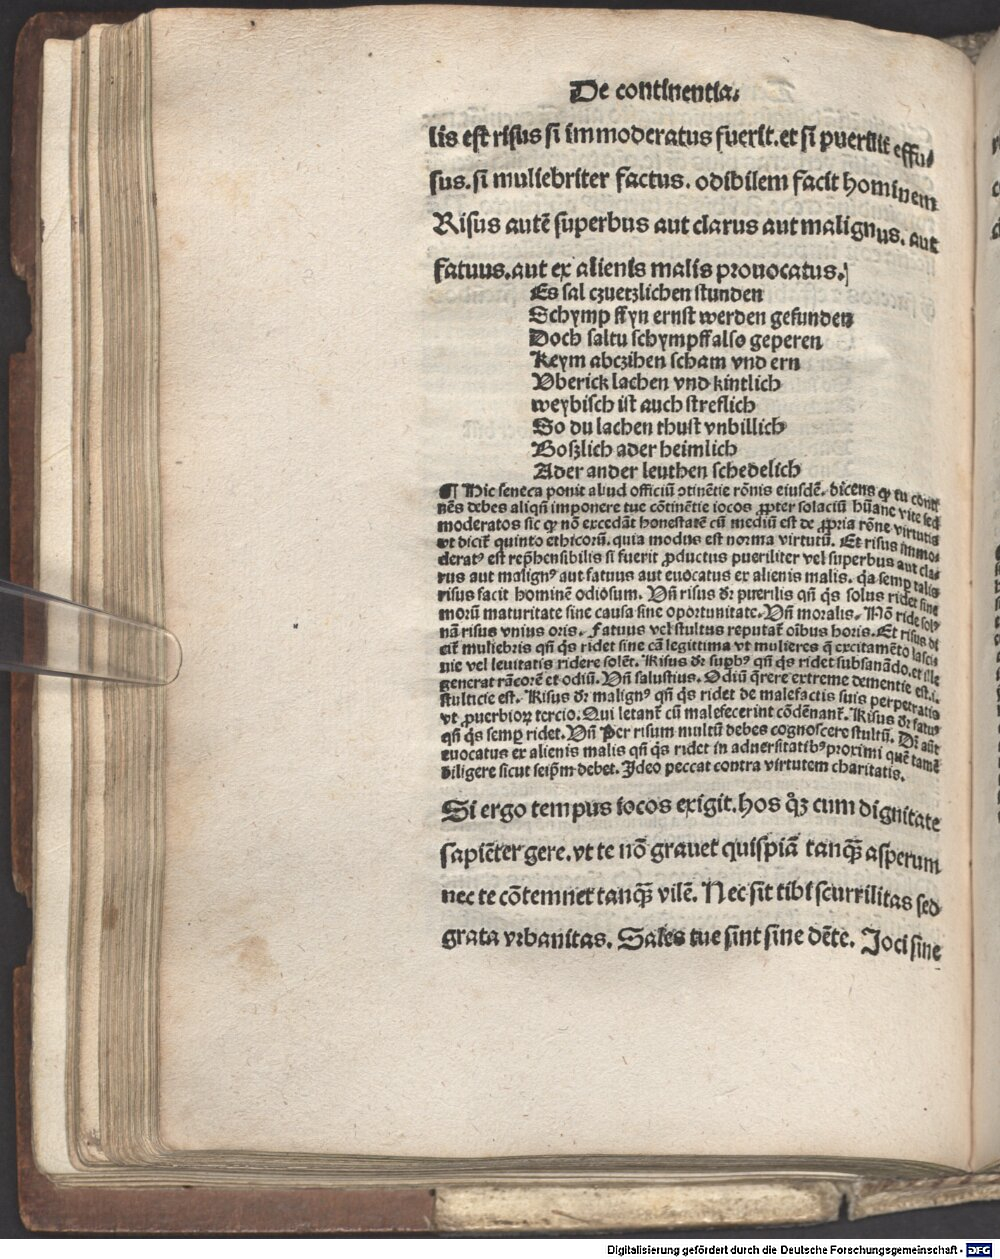 De continentia.
lis est risus si immoderatus fuerit. et si pueriliť effu-
sus. si muliebriter factus. odibilem facit hominem
Risus autē superbus aut clarus aut malignus. aut
fatuus. aut ex alienis malis prouocatus.
Es sal czuetzlichen stunden
Schymp ffyn ernst werden gefunden
Doch saltu schympff also geperen
Keym abczihen scham vnd ern
Vberick lachen vnd kintlich
weybisch ist auch streflich
So du lachen thust vnbillich
Boszlich ader heimlich
Ader ander leuthen schedelich
¶ Hic seneca ponit aliud officiū ↄtinētie rōnis eiusdē. dicens ꝙ tu conti
nēs debes aliqn̄ imponere tue cōtinētie iocos ꝓpter solaciū hūane vite sed
moderatos sic ꝙ nō excedāt honestatē cū mediū est de ꝓpria rōne virtutis
vt dicit̄ quinto ethicorū. quia modus est norma virtutū. Et risus immo-
deratꝰ est rep̄hensibilis si fuerit ꝓductus pueriliter vel superbus aut cla-
rus aut malignꝰ aut fatuus aut euocatus ex alienis malis. q̄a semꝑ talis
risus facit hominē odiosum. Vn̄ risus dr̄ puerilis qn̄ q̄s solus ridet sine
morū maturitate sine causa sine oportunitate. Vn̄ moralis. Nō ride solꝰ
nā risus vnius oris. Fatuus vel stultus reputat̄ oībus horis. Et risus di
cit̄ muliebris qn̄ q̄s ridet sine cā legittima vt mulieres q̄ excitamēto lasci-
uie vel leuitatis ridere solēt. Risus dr̄ suꝑbꝰ qn̄ q̄s ridet subsanādo. et ille
generat rācorē et odiū. Vn̄ salustius. Odiū q̄rere extreme dementie est. i.
stulticie est. Risus dr̄ malignꝰ qn̄ q̄s ridet de malefactis suis perpetratis
vt ꝓuerbioꝝ tercio. Qui letant̄ cū malefecerint cōdēnant̄. Risus dr̄ fatuꝰ
qn̄ q̄s semꝑ ridet. Vn̄ Per risum multū debes cognoscere stultū. Dr̄ aūt
euocatus ex alienis malis qn̄ q̄s ridet in aduersitatibꝰ proximi quē tamē
diligere sicut seip̄m debet. Ideo peccat contra virtutem charitatis.
Si ergo tempus iocos exigit. hos qͦꝫ cum dignitate
sapiēter gere. vt te nō grauet quispiā tanqꝫ̄ asperum
nec te cōtemnet tanqꝫ̄ vilē. Nec sit tibi scurrilitas sed
grata vrbanitas. Sales tue sint sine dēte. Joci sine
Digitalisierung gefördert durch die Deutsche Forschungsgemeinschaft - DFG